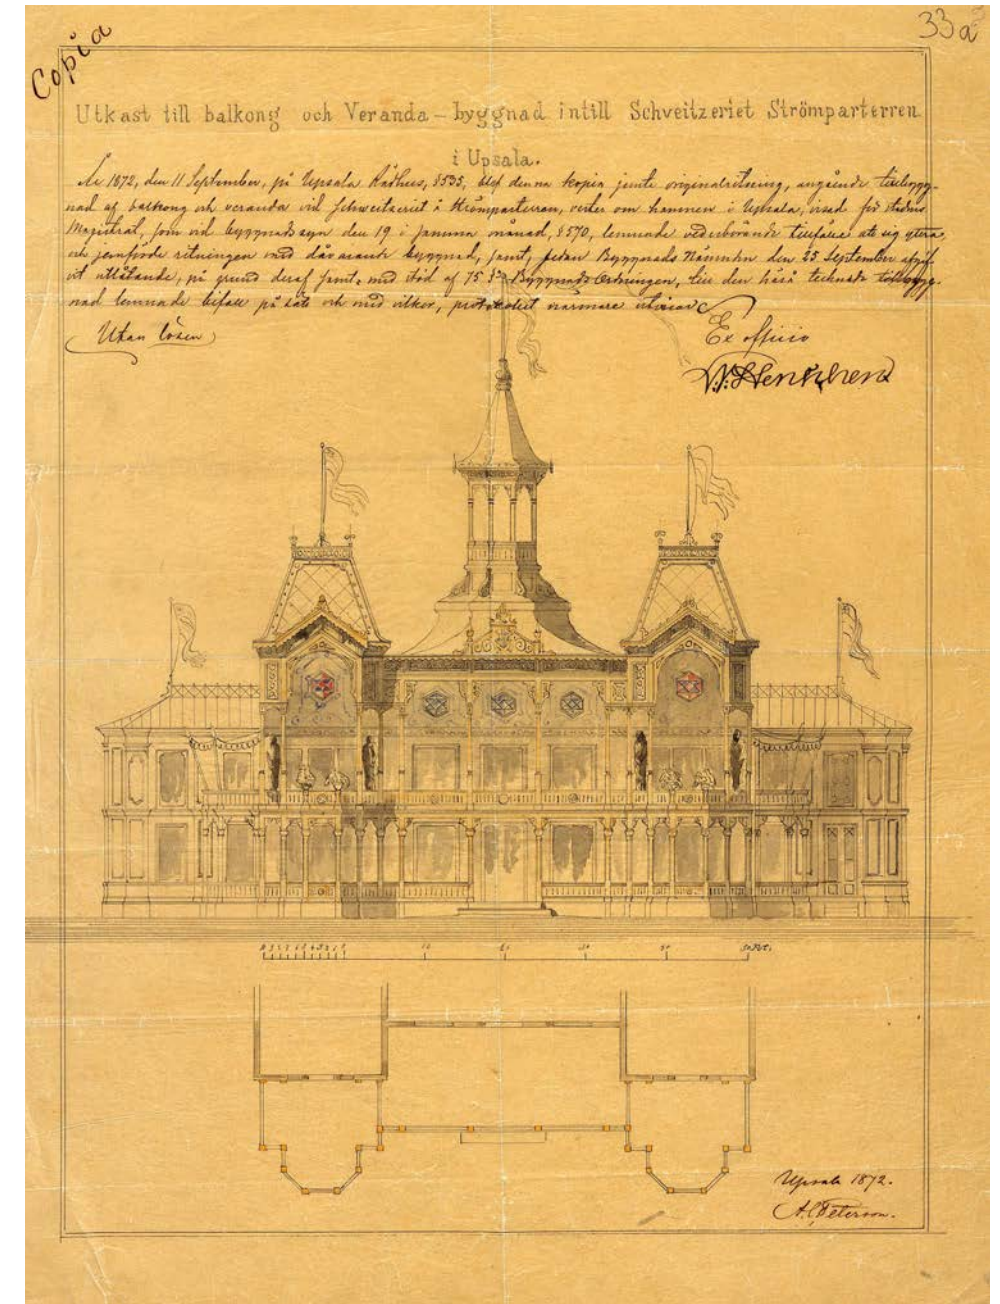 Copia
33a
Utkast till balkong och Veranda-byggnad intill Schveitzeriet Strömparterren
i Upsala.
År 1872, den 11 September, på Upsala Rådhus, §535, blef denna kopia jemte originalritning, angående tillbygg-
nad af balkong och veranda vid Schweitzeriet i Strömparterren, om hamnen i Upsala, för stadens
Magistrat, som vid byggnadssyn den 19 i samma månad, §570, lemnade vederbörande tillfälle att sig yttra,
och jemförde ritningen med dåvarande byggnad, samt, sedan Byggnads Nämnden den 25 September
ett utlåtande, på grund deraf samt, med stöd af 15 § Byggnads Ordningen, till den härå tecknade tillbygg-
nad lemnade bifall på sätt och med vilkor, protokollet närmare utvisar
(Utan lösen)
Ex officio
10 20 30 40 50 Fot.
Upsala 1872.
A. C. Peterson.